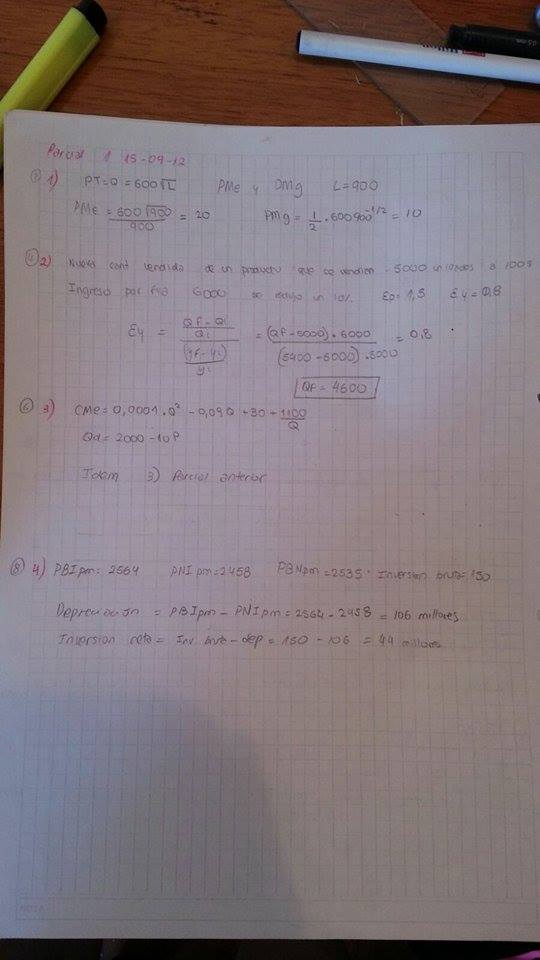 Parcial 1 15-09-12
① 1) PT=Q=600√L PMe y PMg L=900
PMe = 600√900 / 900 = 20 PMg = 1/2 · 600 900^-1/2 = 10
④ 2) Nueva cant vendida de un producto que se vendian 5000 unidades a 100$
Ingreso por flia 6000 se redujo un 10%. Ep=1,5 Ey=0,8
Ey = ((QF-Qi)/Qi) / ((yf-yi)/yi) = (QF-5000)·6000 / (5400-6000)·5000 = 0,8
QF=4600
⑥ 3) CMe=0,0001.Q² -0,09Q +30 + 1100/Q
Qd = 2000-10P
Idem 3) Parcial anterior
⑧ 4) PBIpm= 2564 PNIpm=2458 PBNpm=2535 Inversion bruta=150
Depreciacion = PBIpm-PNIpm=2564-2458=106 millones
Inversion neta= Inv. bruta-dep=150-106=44 millones
NOTA